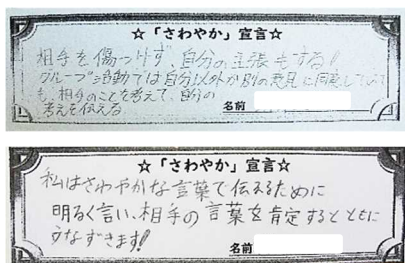 ☆「さわやか」宣言☆
相手を傷つけず、自分の主張もする!
グループ活動では自分以外が別の意見に同意していて
も、相手のことを考えて、自分の
考えを伝える
名前
☆「さわやか」宣言☆
私はさわやかな言葉で伝えるために
明るく言い、相手の言葉を肯定するとともに
うなずきます!
名前